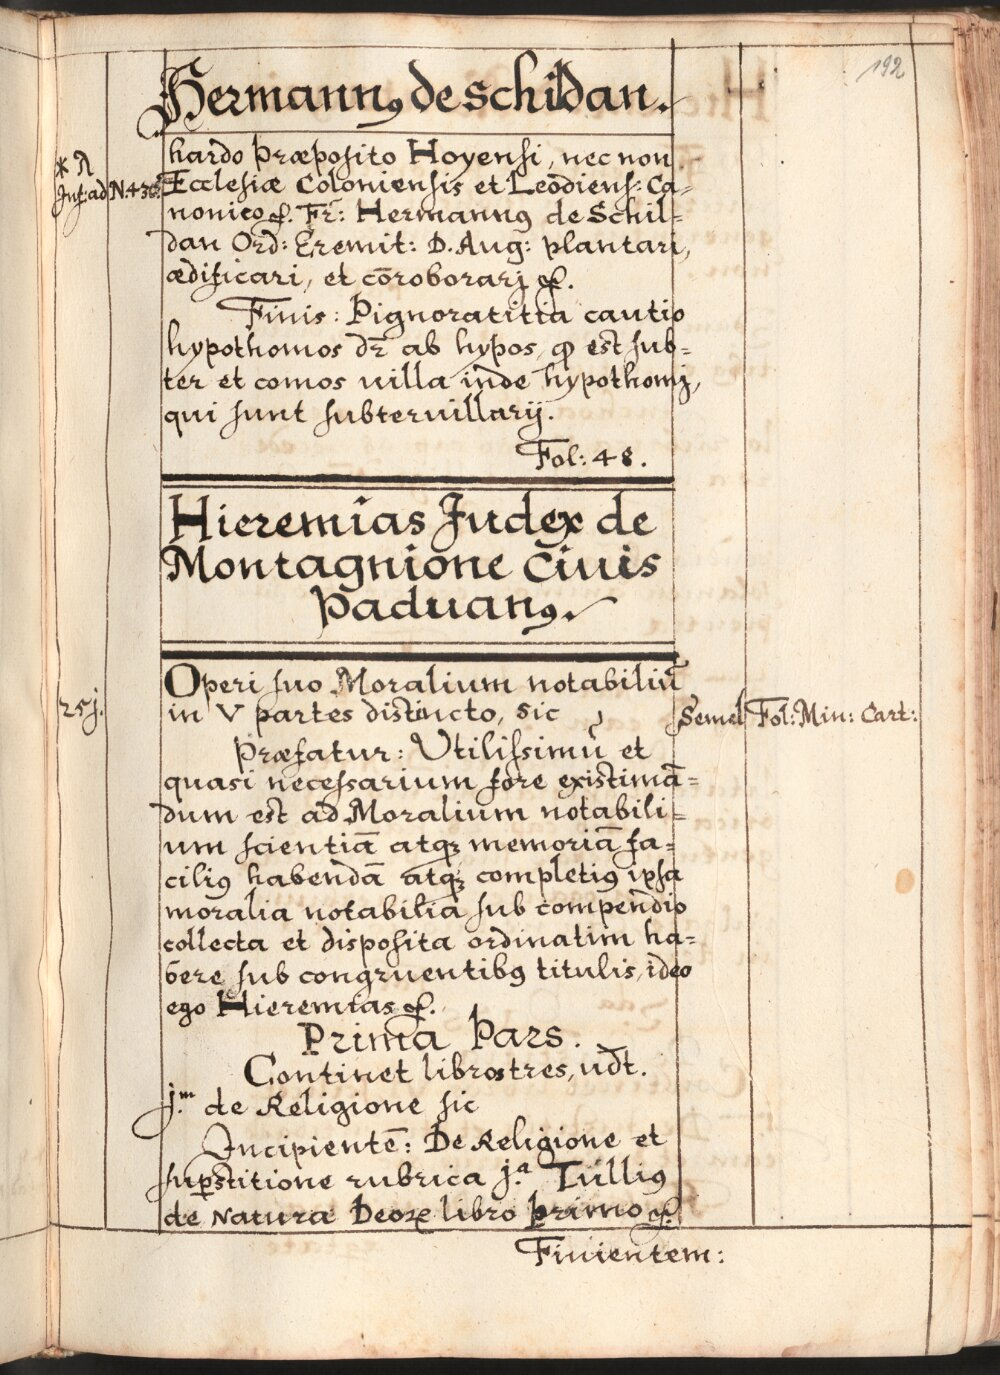 192
Hermannꝰ de Schildan.
hardo Præposito Hoyensi, nec non
* λ
Inf: ad N. 436.
Ecclesiæ Coloniensis et Leodiens: Ca-
nonico &. Fr: Hermannꝰ de Schil-
dan Ord: Eremit: D. Aug: plantari,
ædificari, et cōroborarj &.
Finis: Pignoratitia cautio
hypothomos dr̄ ab hypos, qđ est sub-
ter et comos uilla inde hypothomj,
qui sunt subteruillarij.
Fol: 48.
Hieremias Judex de
Montagnione Ciuis
Paduanꝰ.
Operi suo Moralium notabiliū
25j.
in V partes distincto, sic
Semel Fol: Min: Cart:
Præfatur: Utilissimū et
quasi necessarium fore existimā-
dum est ad Moralium notabili-
um scientiā atqꝫ memoriā fa-
ciliꝰ habendā atqꝫ completiꝰ ipsa
moralia notabilia sub compendio
collecta et disposita ordinatim ha-
bere sub congruentibꝰ titulis, ideo
ego Hieremias &.
Prima Pars.
Continet libros tres, udt.
j.m de Religione sic
Incipientē: De Religione et
suꝑstitione rubrica j.a Tulliꝰ
de Natura Deoꝝ libro primo &.
Finientem: